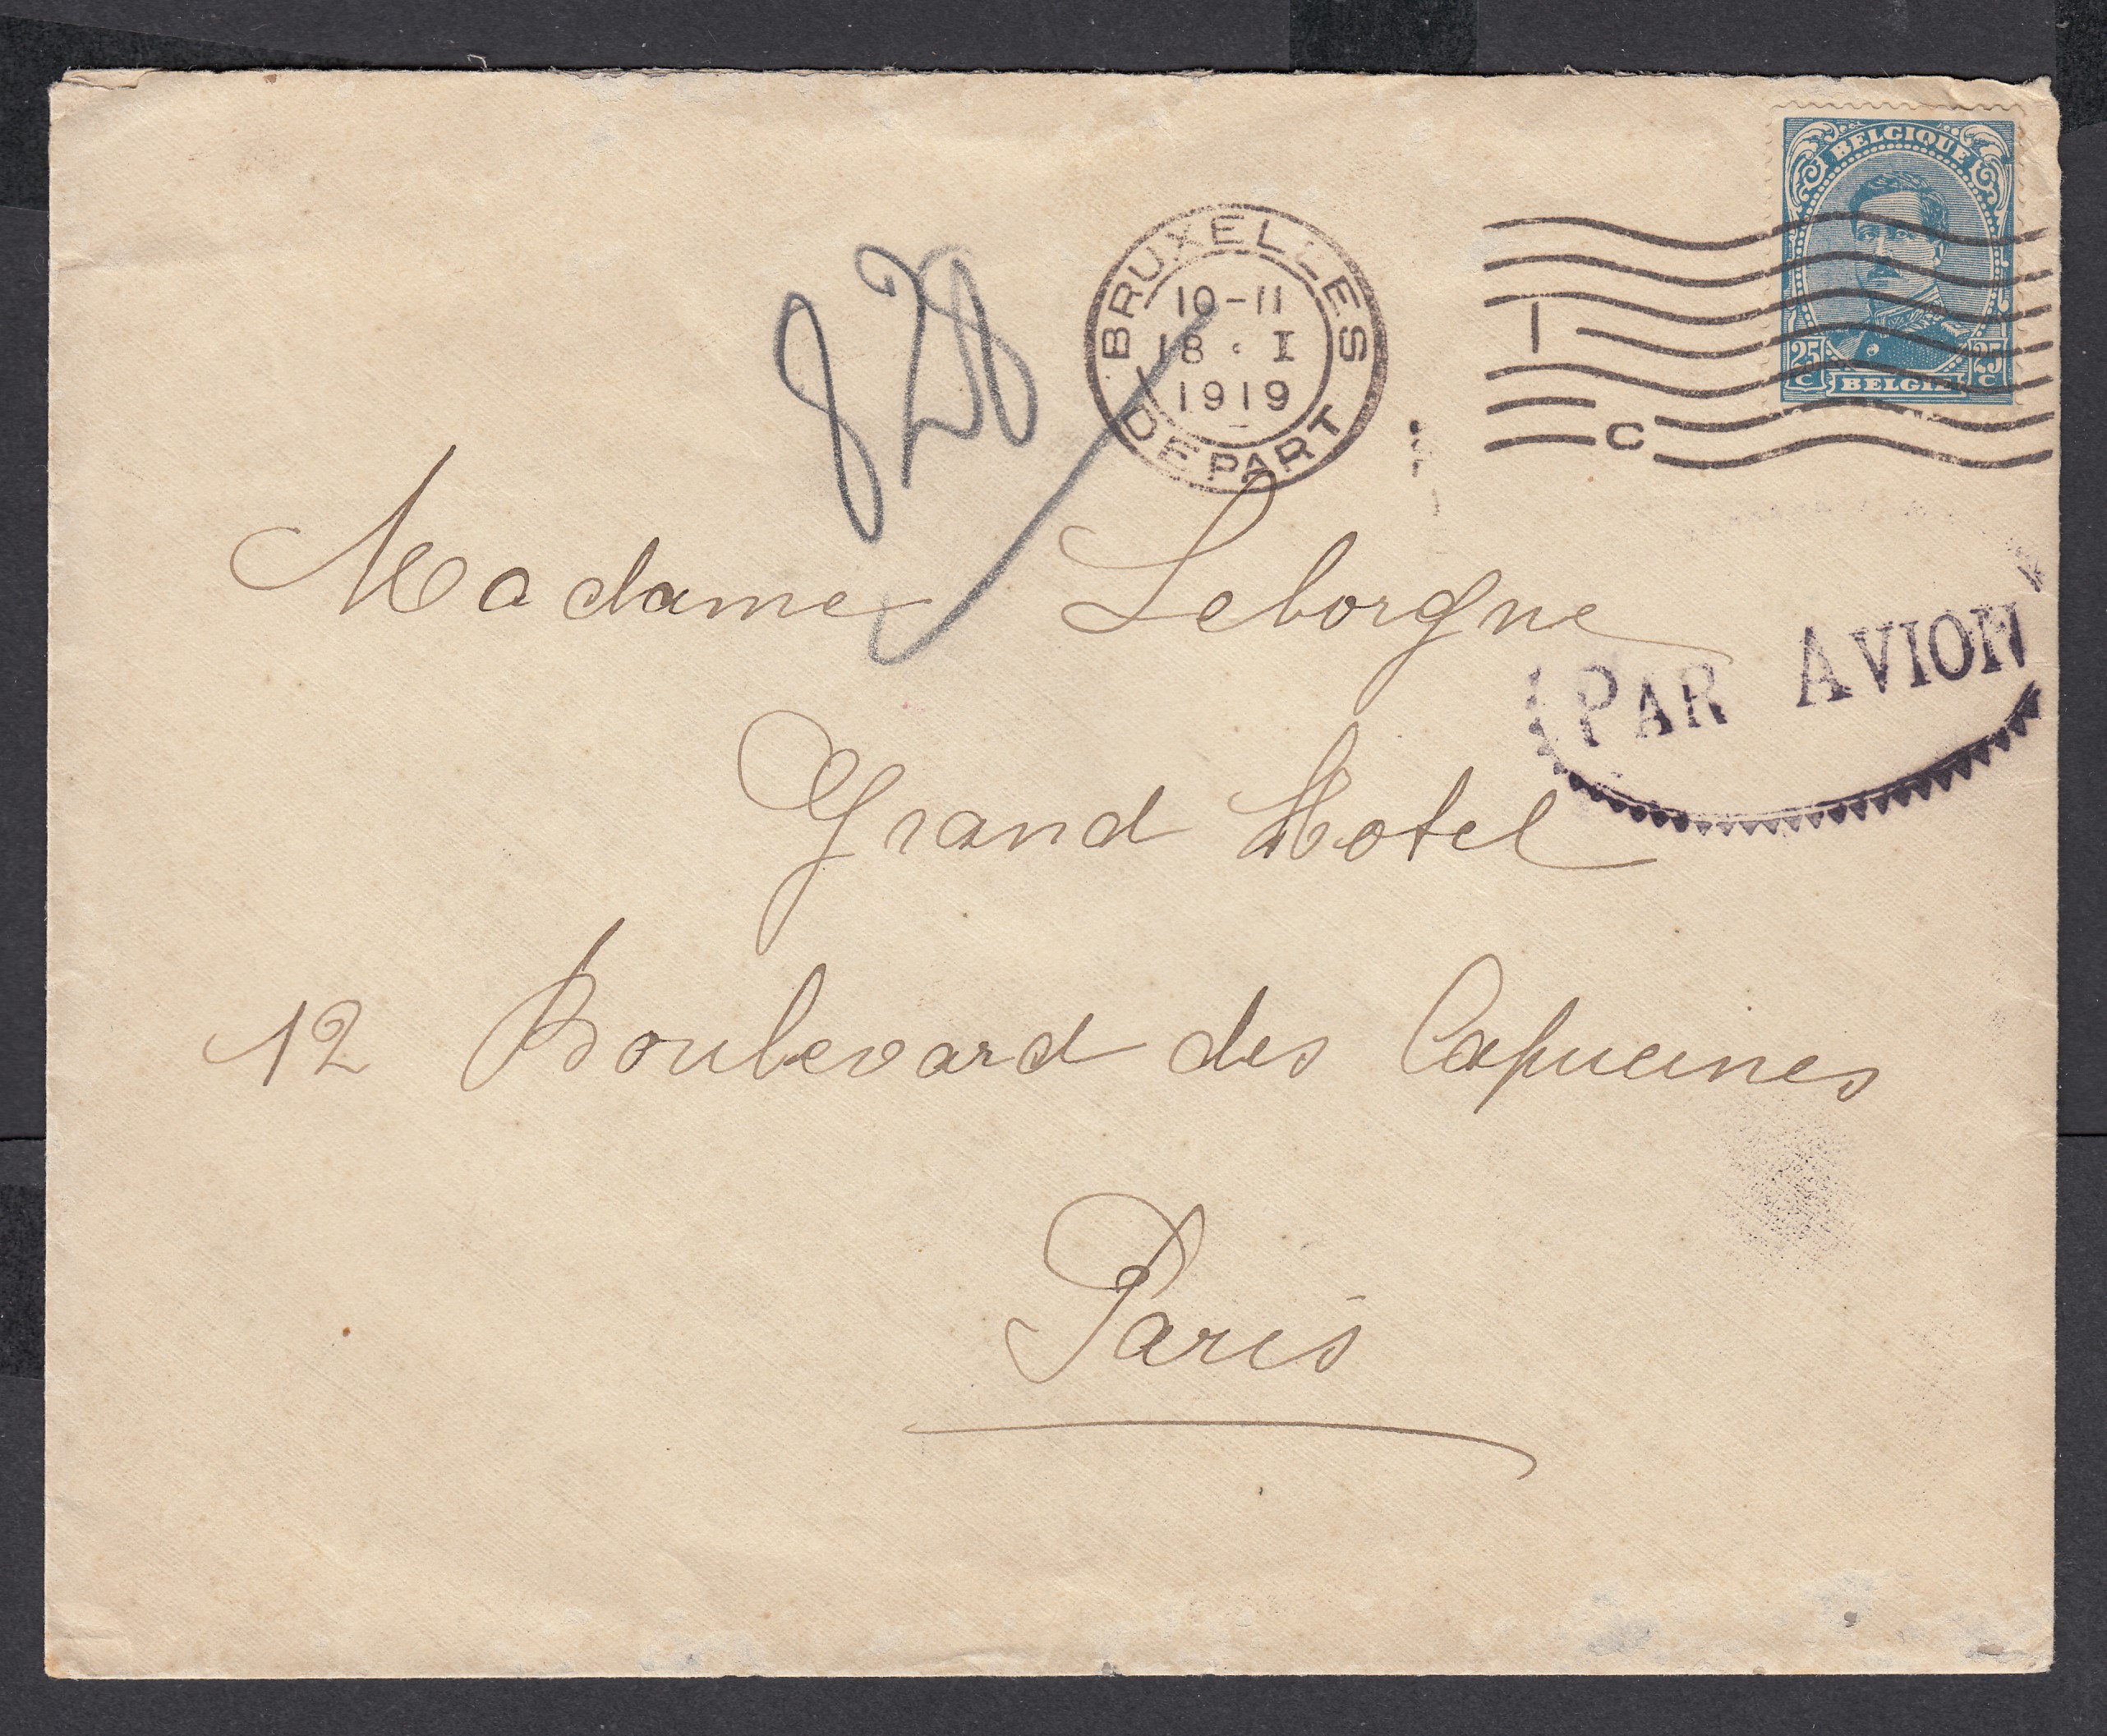 BELGIQUE
25 C
25 C
BELGIË
BRUXELLES
10-11
18 · I
1919
DEPART
1
C
828
Madame Leborgne
PAR AVION
Grand Hotel
12 Boulevard des Capucines
Paris